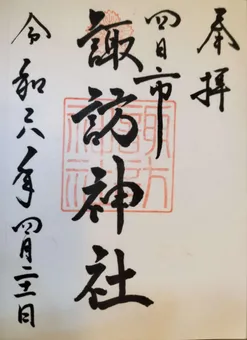 奉拝
四日市
諏訪神社
令和六年四月二十一日